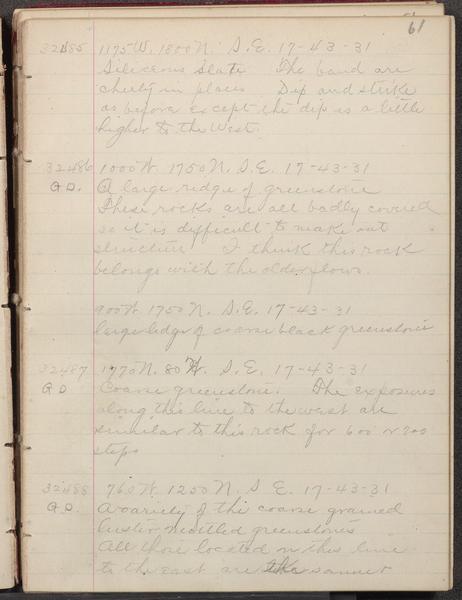 61
32485 1175 W. 1800 N. S.E. 17-43-31
Siliceous Slate The band are
cherty in places Dip and strike
as before except the dip is a little
higher to the West.
32486 1000 W. 1750 N. S.E. 17-43-31
G.D. A large ridge of greenstone
These rocks are all badly covered
so it is difficult to make out
structure. I think this rock
belongs with the older flows.
900 W. 1750 N. S.E. 17-43-31
large ledge of coarse black greenstone
32487 1770 N. 80 W. S.E. 17-43-31
G D Coarse greenstone. The exposures
along this line to the west are
similar to this rock for 600 or 700
steps
32488 760 W. 1250 N. S.E. 17-43-31
G.D. A variety of this coarse grained
luster mottled greenstone
All those located on this line
to the east are the